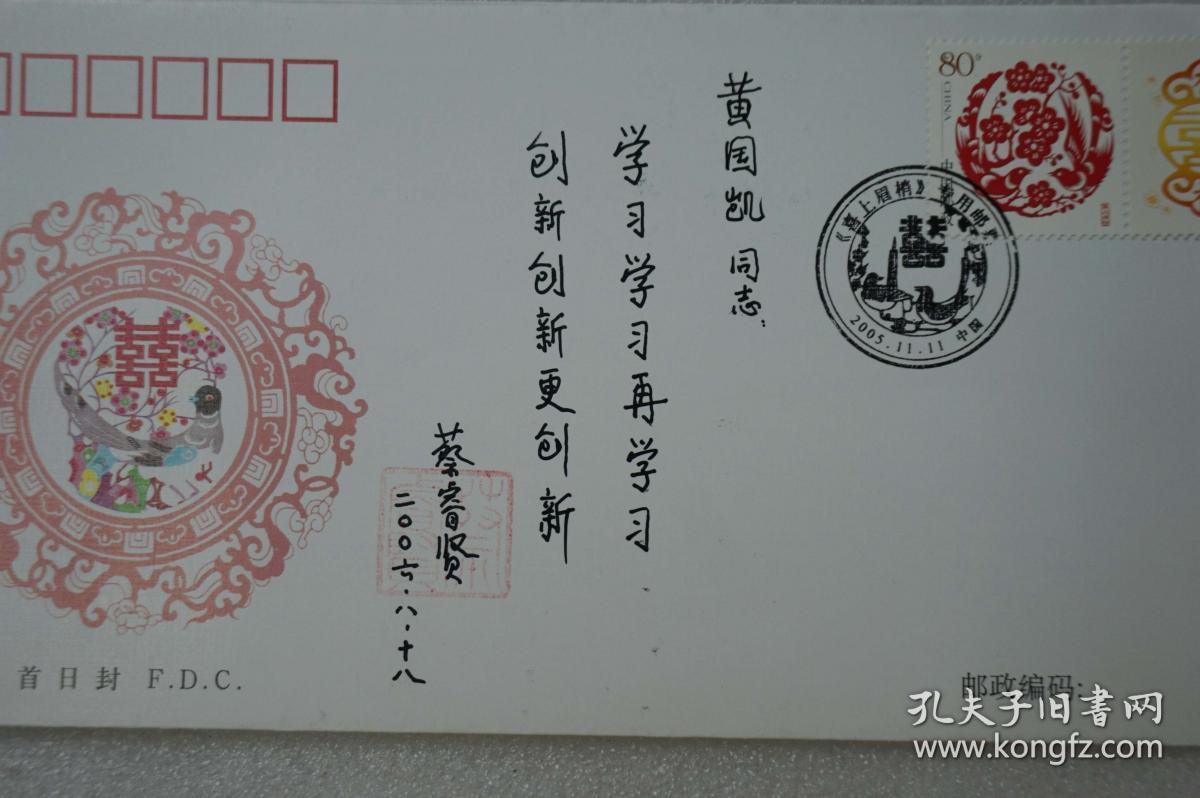 黄国凯同志:
学习学习再学习
创新创新更创新
蔡睿贤
二〇〇六.八.十八
80分
CHINA
《喜上眉梢》专用邮票
囍
2005.11.11 中国
囍
首日封 F.D.C.
邮政编码:
孔夫子旧书网
www.kongfz.com